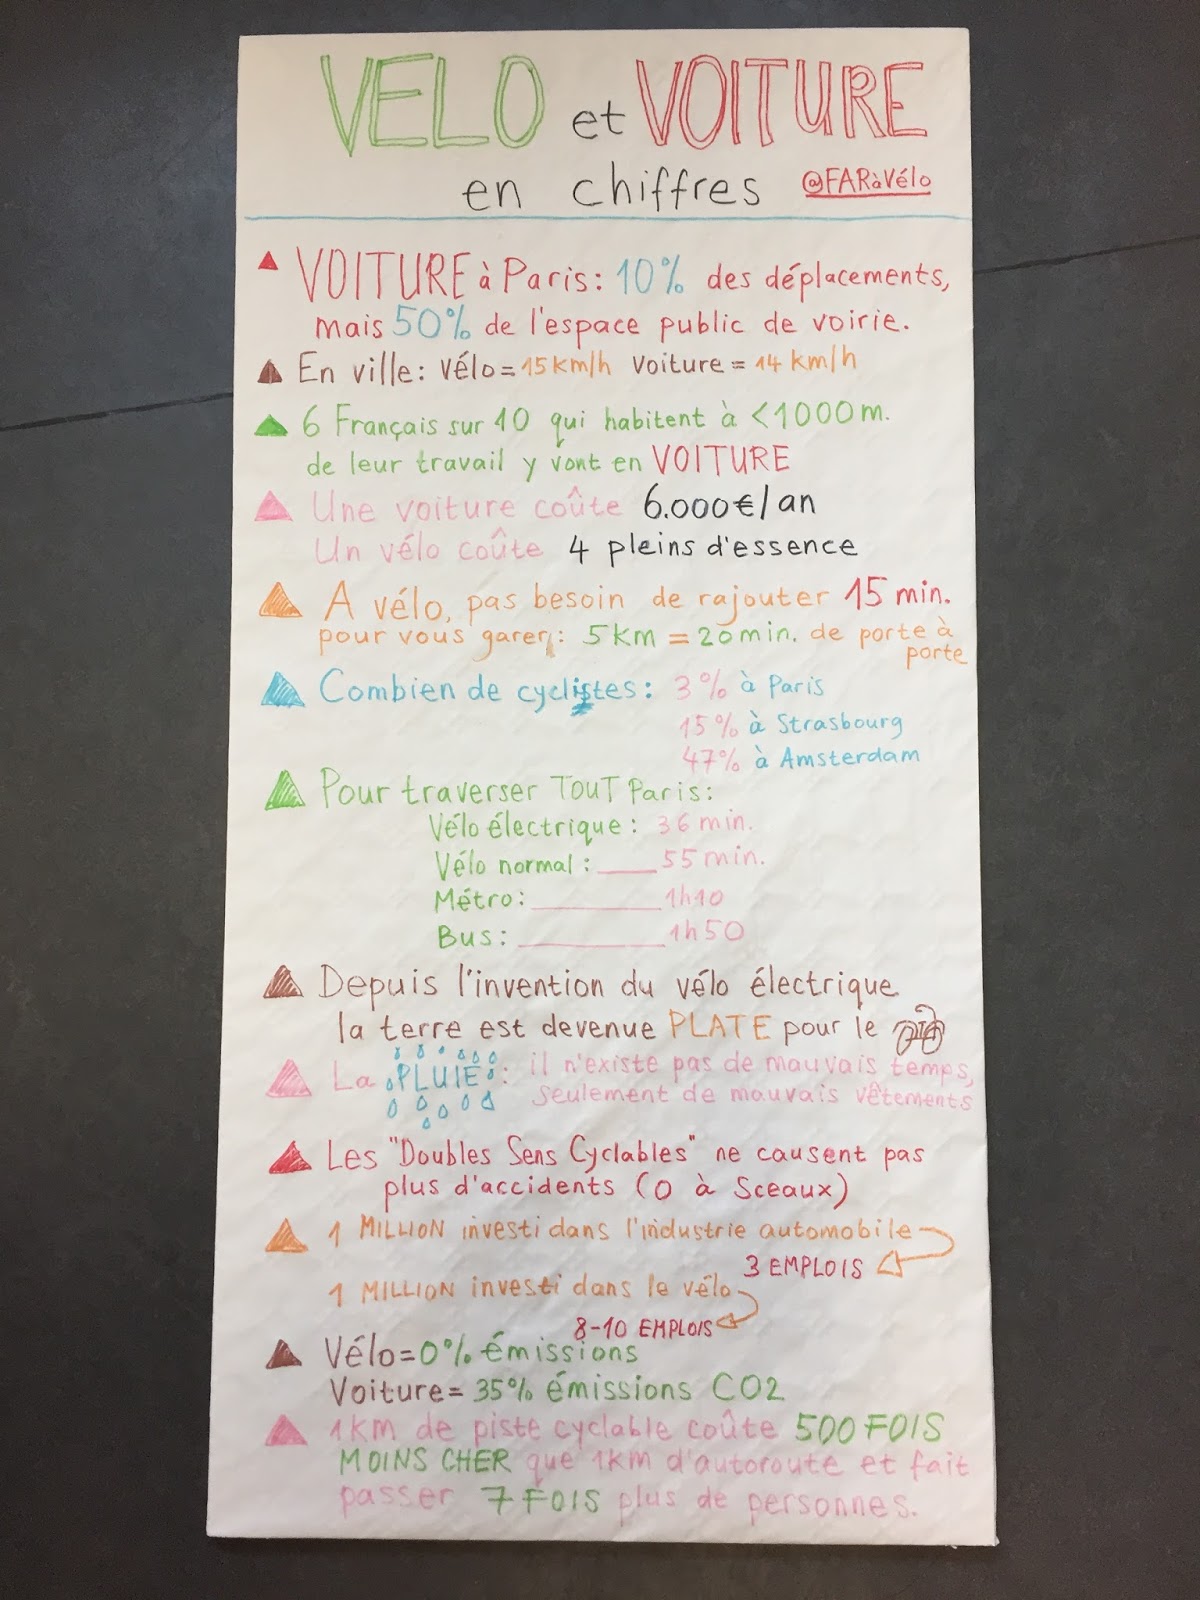 VELO et VOITURE
en chiffres @FARàVélo
VOITURE à Paris: 10% des déplacements,
mais 50% de l'espace public de voirie.
En ville: vélo=15km/h voiture = 14 km/h
6 Français sur 10 qui habitent à <1000m.
de leur travail y vont en VOITURE
Une voiture coûte 6.000€/an
Un vélo coûte 4 pleins d'essence
A vélo, pas besoin de rajouter 15 min.
pour vous garer: 5km = 20min. de porte à
porte
Combien de cyclistes: 3% à Paris
15% à Strasbourg
47% à Amsterdam
Pour traverser TOUT Paris:
Vélo électrique: 36 min.
Vélo normal: ___55min.
Métro:________1h10
Bus:_________1h50
Depuis l'invention du vélo électrique
la terre est devenue PLATE pour le
La PLUIE: il n'existe pas de mauvais temps,
seulement de mauvais vêtements
Les "Doubles Sens Cyclables" ne causent pas
plus d'accidents (0 à Sceaux)
1 MILLION investi dans l'industrie automobile
3 EMPLOIS
1 MILLION investi dans le vélo
8-10 EMPLOIS
Vélo=0% émissions
Voiture= 35% émissions CO2
1km de piste cyclable coûte 500 FOIS
MOINS CHER que 1km d'autoroute et fait
passer 7 FOIS plus de personnes.